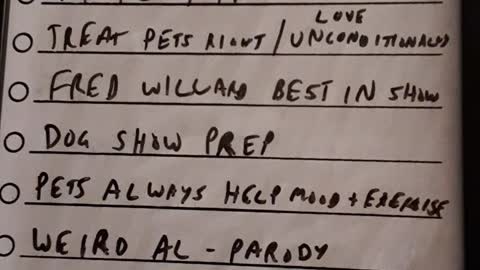 TREAT PETS RIGHT / LOVE UNCONDITIONALLY
FRED WILLARD BEST IN SHOW
DOG SHOW PREP
PETS ALWAYS HELP MOOD + EXERCISE
WEIRD AL - PARODY